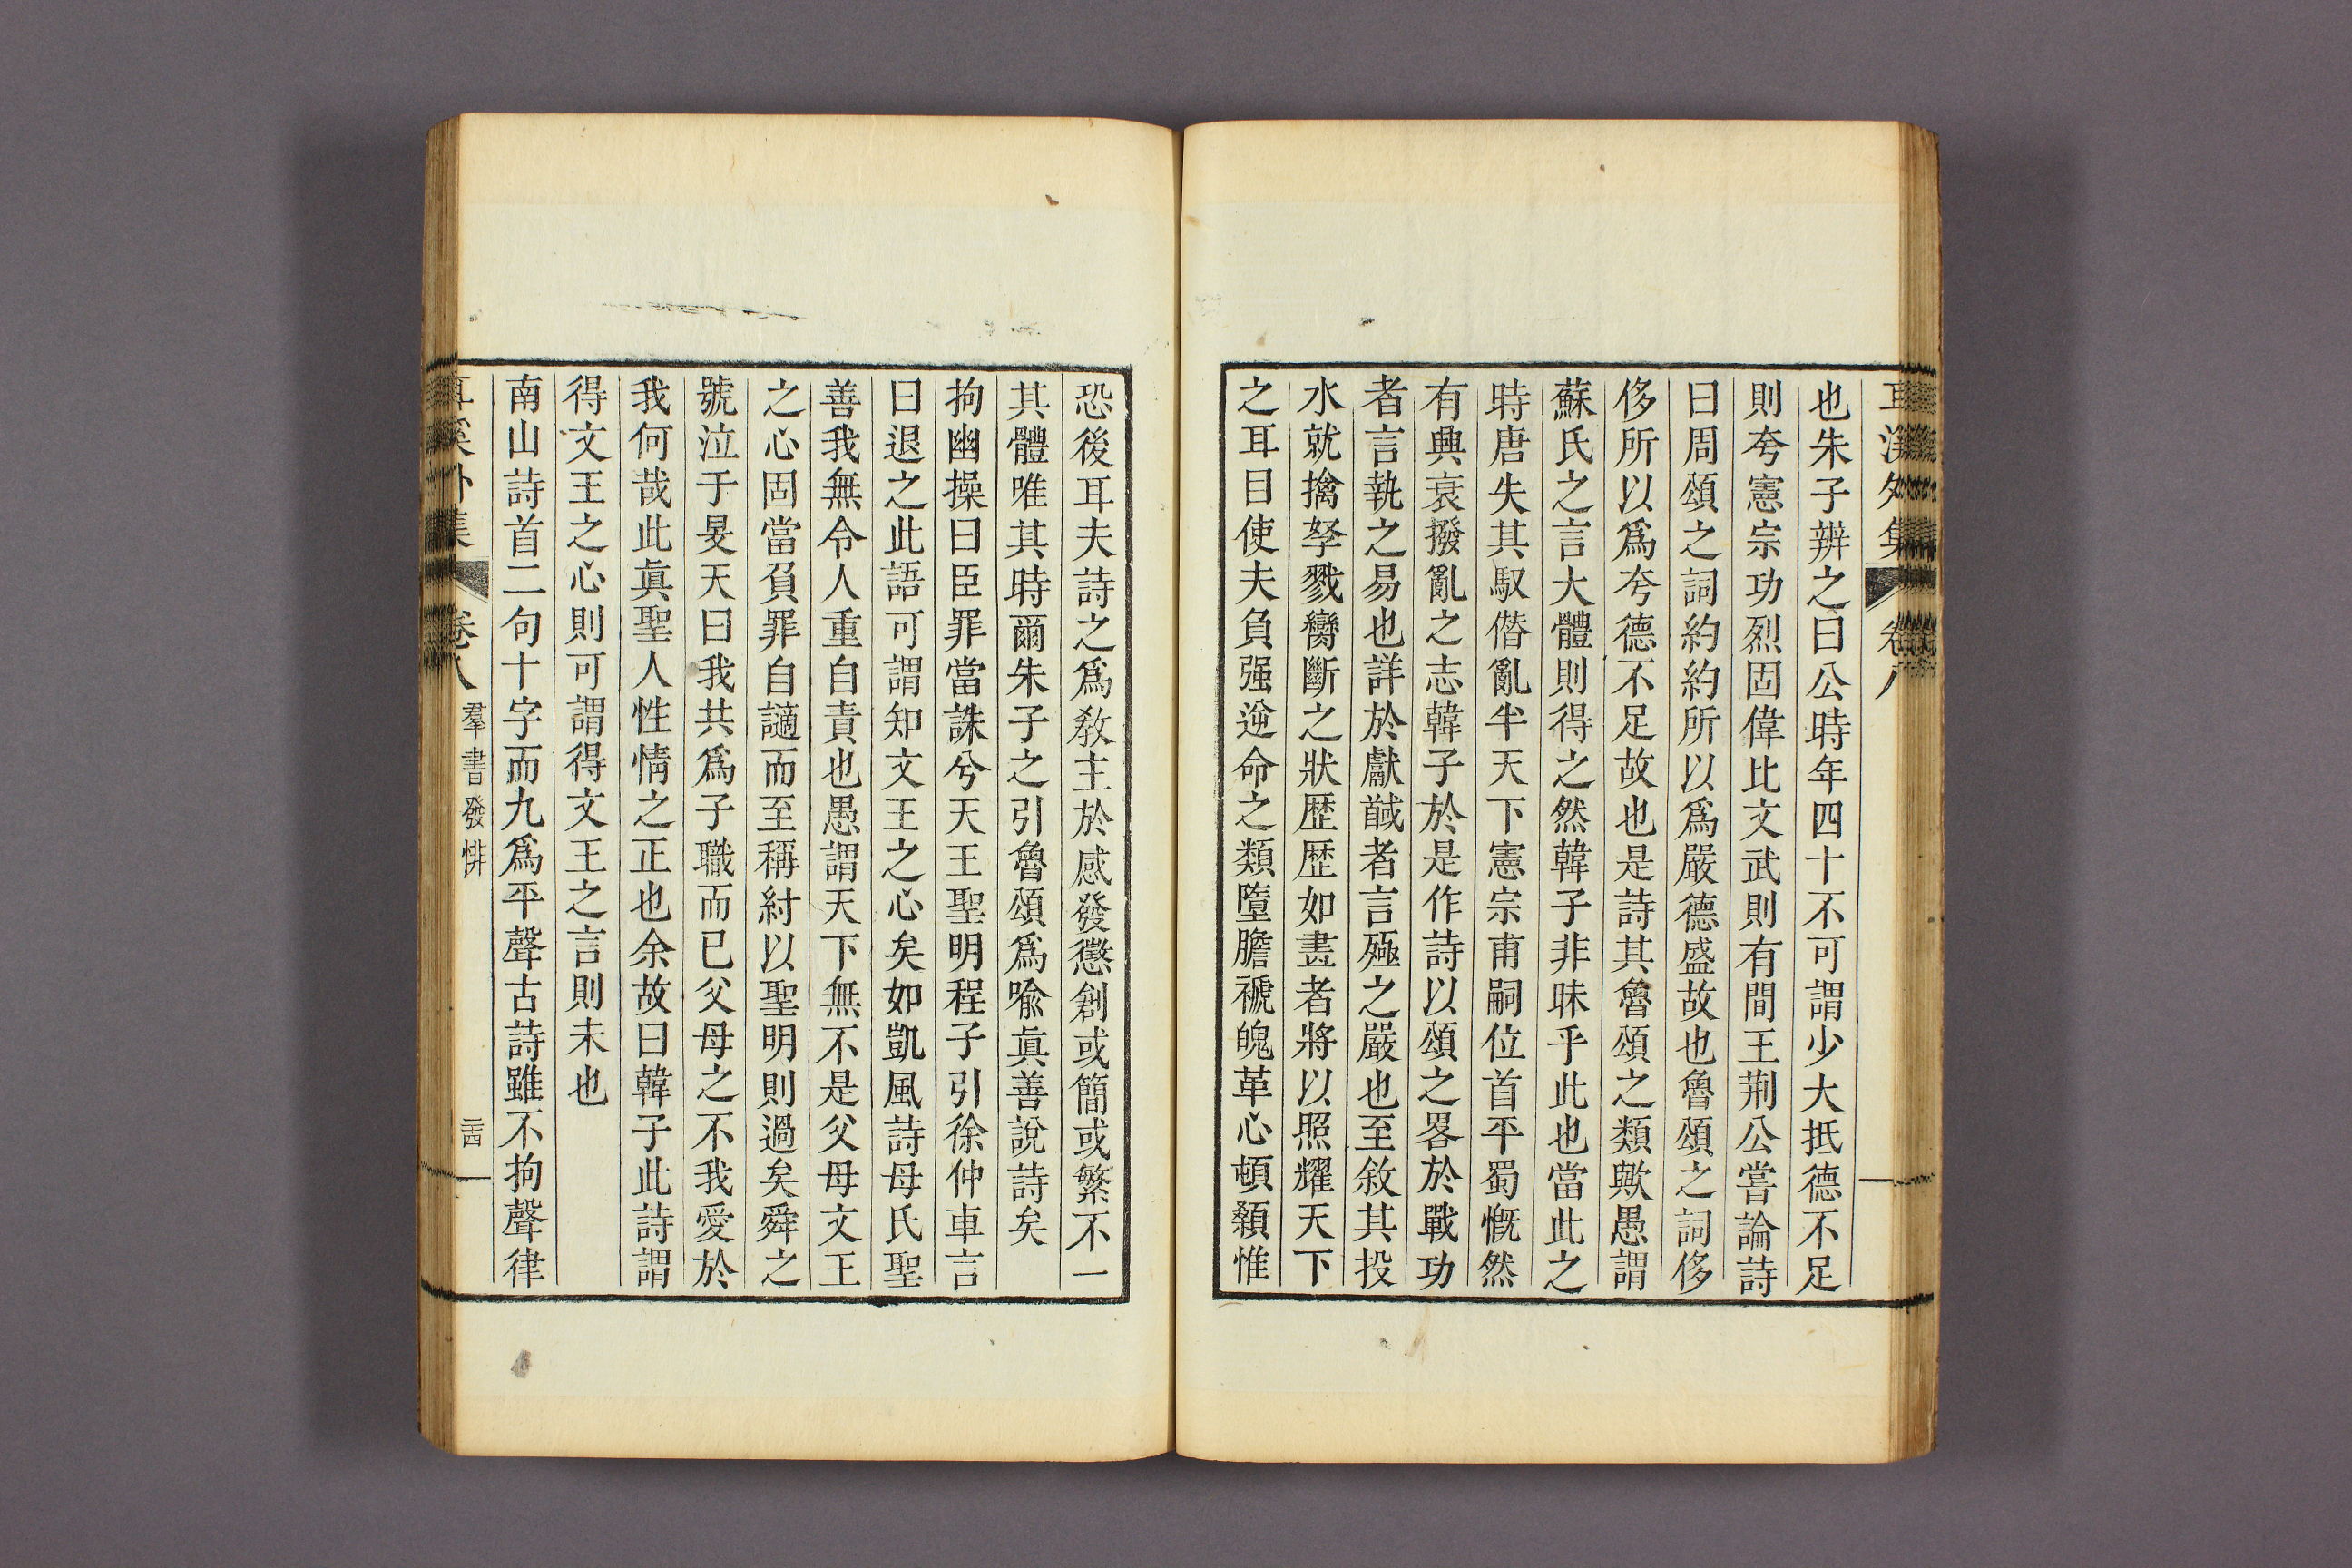 耳溪外集 卷八
也朱子辨之曰公時年四十不可謂少大抵德不足
則夸憲宗功烈固偉比文武則有間王荆公嘗論詩
曰周頌之詞約約所以爲嚴德盛故也魯頌之詞侈
侈所以爲夸德不足故也是詩其魯頌之類歟愚謂
蘇氏之言大體則得之然韓子非昧乎此也當此之
時唐失其馭僭亂半天下憲宗甫嗣位首平蜀慨然
有興衰撥亂之志韓子於是作詩以頌之畧於戰功
者言執之易也詳於獻馘者言殛之嚴也至敘其投
水就擒孥戮臠斷之狀歷歷如畫者將以照耀天下
之耳目使夫負强逆命之類墮膽褫魄革心頓顙惟
恐後耳夫詩之爲教主於感發懲創或簡或繁不一
其體唯其時爾朱子之引魯頌爲喩眞善說詩矣
拘幽操曰臣罪當誅兮天王聖明程子引徐仲車言
曰退之此語可謂知文王之心矣如凱風詩母氏聖
善我無令人重自責也愚謂天下無不是父母文王
之心固當負罪自讁而至稱紂以聖明則過矣舜之
號泣于旻天曰我共爲子職而已父母之不我愛於
我何哉此眞聖人性情之正也余故曰韓子此詩謂
得文王之心則可謂得文王之言則未也
南山詩首二句十字而九爲平聲古詩雖不拘聲律
耳溪外集 卷八 羣書發悱 三四